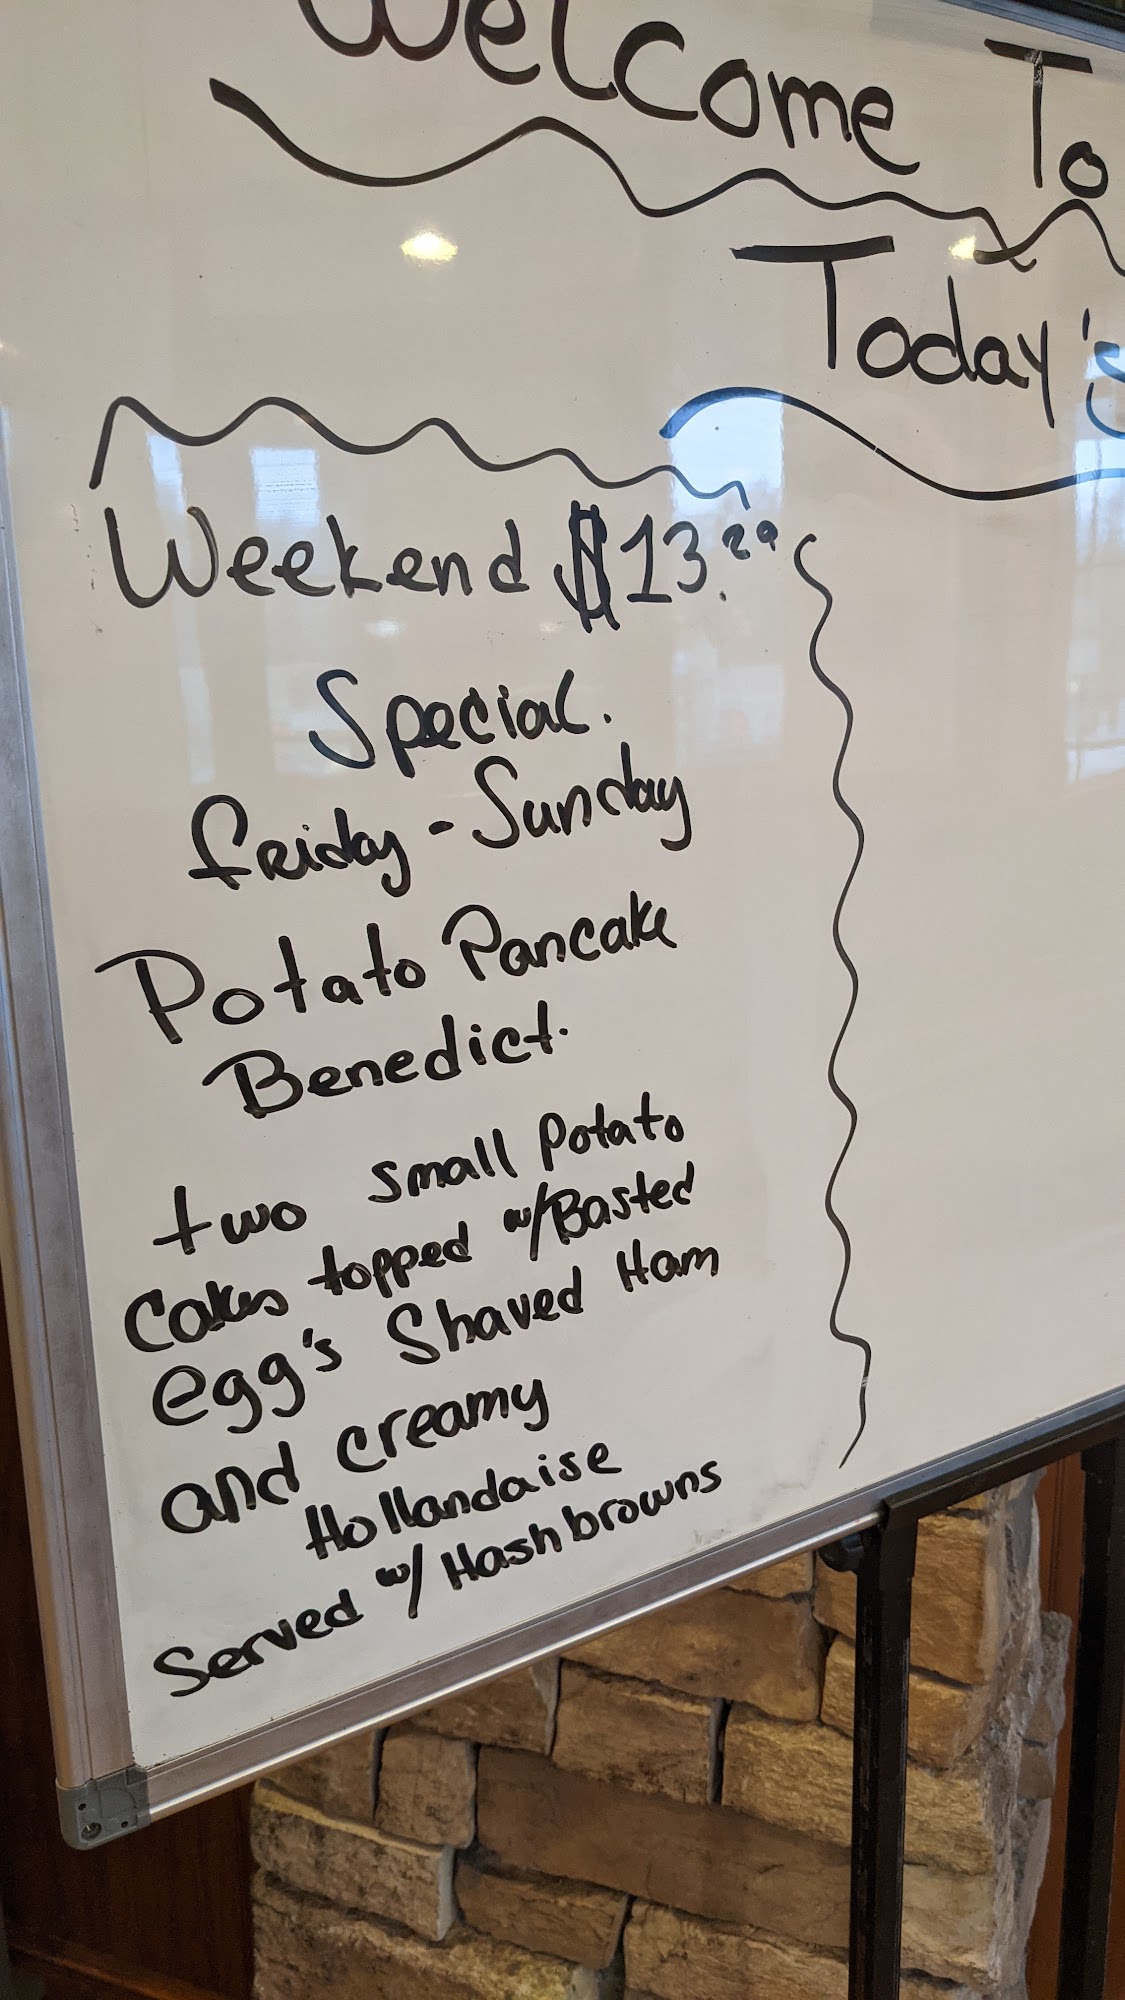 Welcome To
Today's
Weekend $13.29
Special.
friday - Sunday
Potato Pancake
Benedict.
two small potato
Cakes topped w/Basted
egg's Shaved Ham
and creamy
Hollandaise
Served w/ Hashbrowns